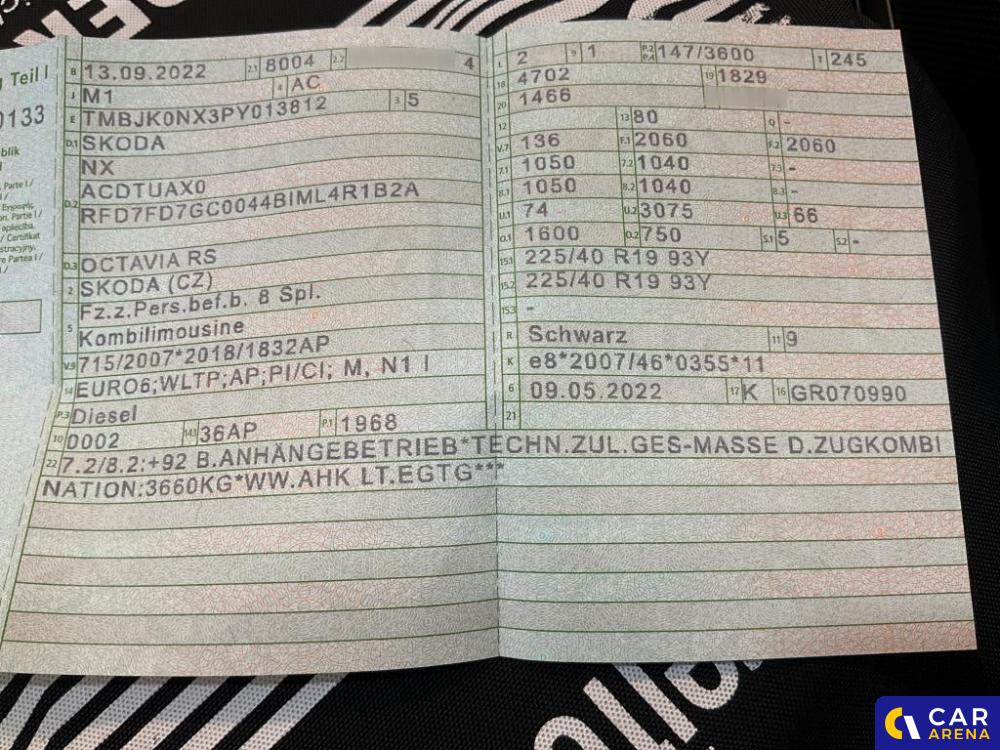 Teil I
0133
B 13.09.2022 2.1 8004 2.2 4
J M1 4 AC
E TMBJK0NX3PY013812 3 5
D.1 SKODA
NX
D.2 ACDTUAX0
RFD7FD7GC0044BIML4R1B2A
D.3 OCTAVIA RS
2 SKODA (CZ)
5 Fz.z.Pers.bef.b. 8 Spl.
Kombilimousine
V.9 715/2007*2018/1832AP
14 EURO6;WLTP;AP;PI/CI; M, N1 I
P.3 Diesel
10 0002 14.1 36AP P.1 1968
L 2 9 1 P.2 P.4 147/3600 T 245
18 4702 19 1829
20 1466
12 13 80 Q -
V.7 136 F.1 2060 F.2 2060
7.1 1050 7.2 1040 7.3 -
8.1 1050 8.2 1040 8.3 -
U.1 74 U.2 3075 U.3 66
O.1 1600 O.2 750 S.1 5 S.2 -
15.1 225/40 R19 93Y
15.2 225/40 R19 93Y
15.3 -
R Schwarz 11 9
K e8*2007/46*0355*11
6 09.05.2022 17 K 16 GR070990
21
22 7.2/8.2:+92 B.ANHÄNGEBETRIEB*TECHN.ZUL.GES-MASSE D.ZUGKOMBI
NATION:3660KG*WW.AHK LT.EGTG***
CAR
ARENA